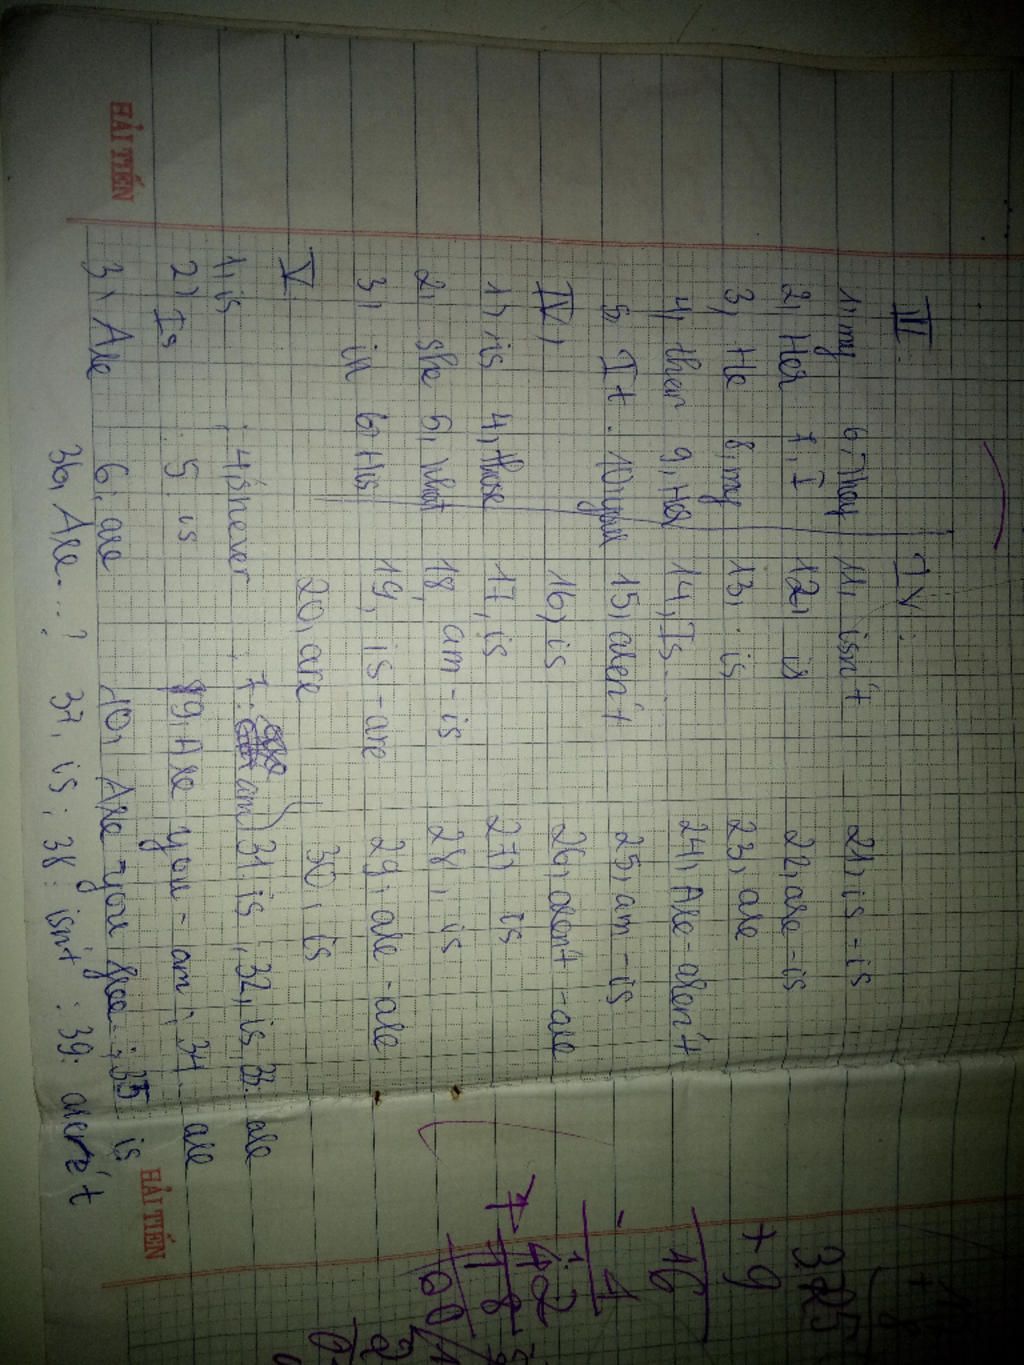 III. IV.
1, my 6 They 11, isn't 21, is - is
2, Her 7, I 12, is 22, are - is
3, He 8, my 13, is 23, are
4, their 9, Her 14, Is... 24, Are - aren't
5 It. 10 your 15, aren't 25, am - is
IV, 16, is 26, aren't - are
1, is 4, those 17, is 27, is
2, she 5, What 18, am - is 28, is
3, in 6, His 19, is - are 29, are - are
V. 20, are 30, is
1, is 4, is never 7. am) 31. is, 32, is, 33. are
2, Is 5. is 9, Are you - am, 34. are
3, Are 6, are 10, Are you - 35 is
36, Are...? 37, is; 38: isn't; 39: aren't
HẢI TIẾN
HẢI TIẾN
+ 9
16
4
42
18
60